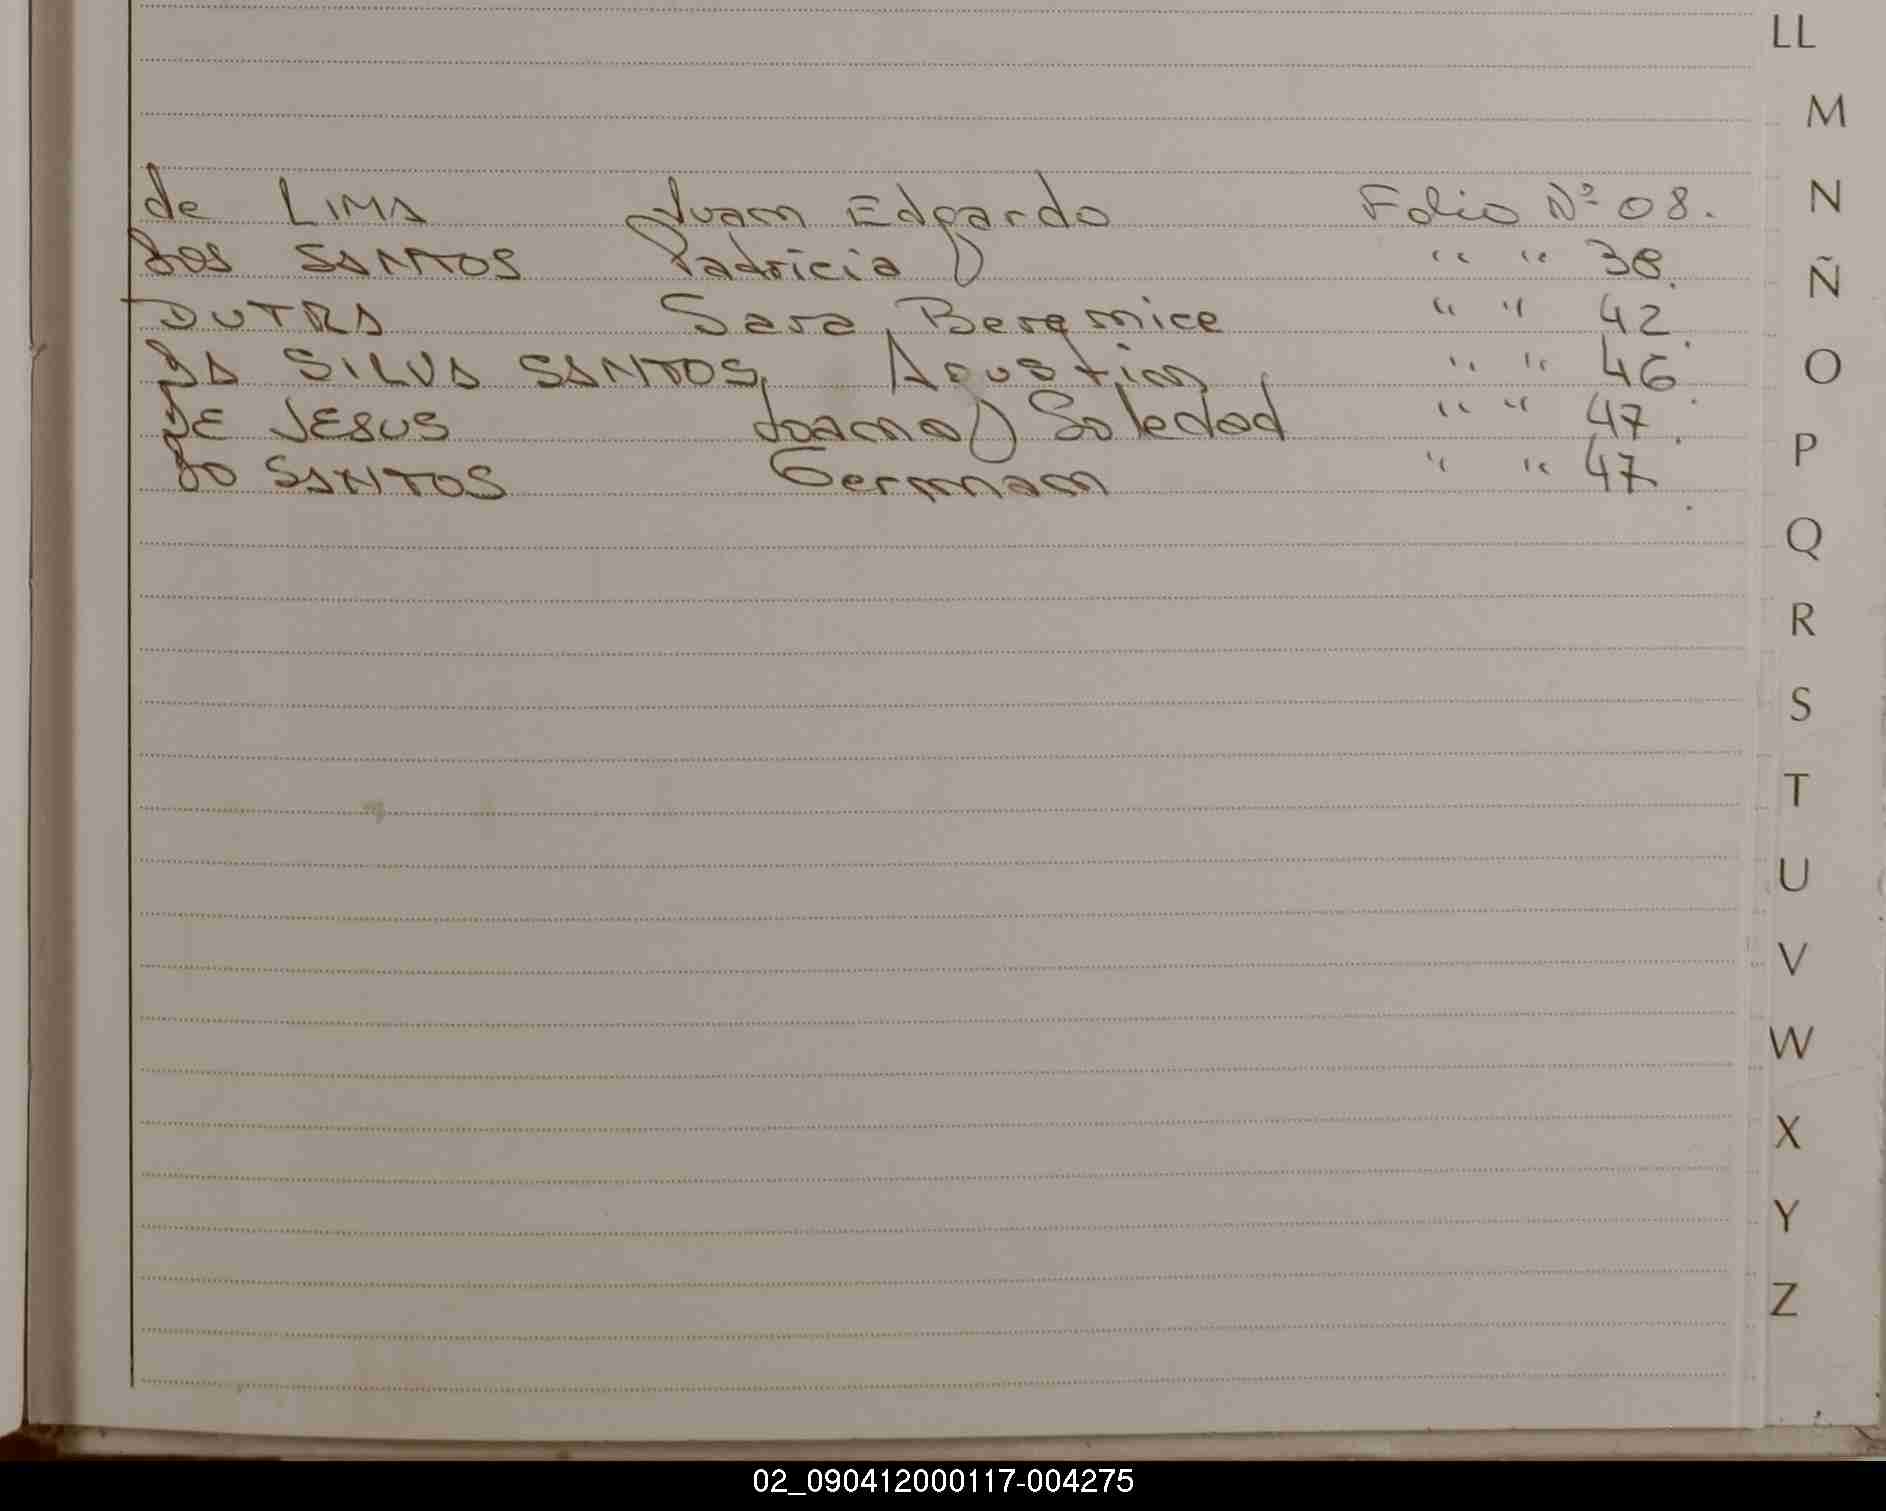 LL
M
de LIMA Juan Edgardo Folio Nº 08.
N
Dos SANTOS Patricia " " 38.
Ñ
DUTRA Sara Berenice " " 42.
DA SILVA SANTOS, Agustin " " 46.
O
DE JESUS Joana Soledad " " 47.
P
DO SANTOS German " " 47.
Q
R
S
T
U
V
W
X
Y
Z
02_090412000117-004275